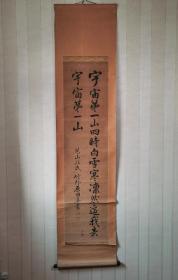 宇宙第一山四時白雪寒凜然還我去
宇宙第一山